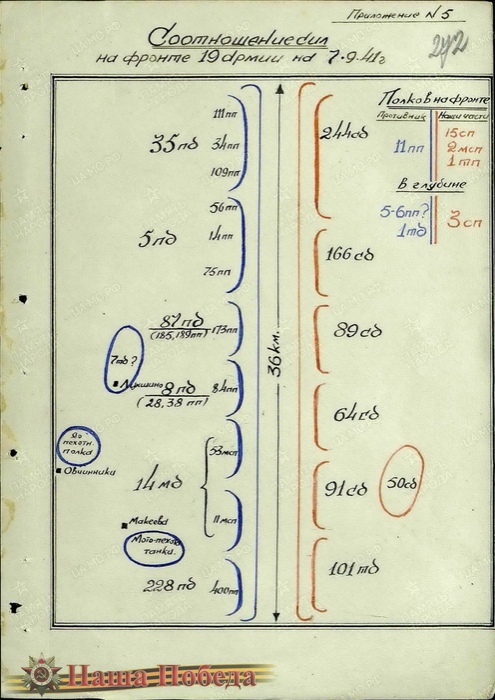 Приложение N5
Соотношение сил
на фронте 19 армии на 7.9.41г
272
Полков на фронте
Противник
Наши части
11пп
15сп
2мсп
1тп
в глубине
5-6пп?
1тд
3сп
35пд
111пп
34пп
109пп
5пд
56пп
14пп
75пп
87пд
(185,189пп)
173пп
7тд?
Лукшино
8пд
(28,38 пп)
84пп
До
пехотн.
полка
Овчинники
14мд
53мсп
11мсп
Макеева
Мото-пехота
танки.
228пд
400пп
36 км.
244сд
166сд
89сд
64сд
91сд
50сд
101тд
Наша Победа